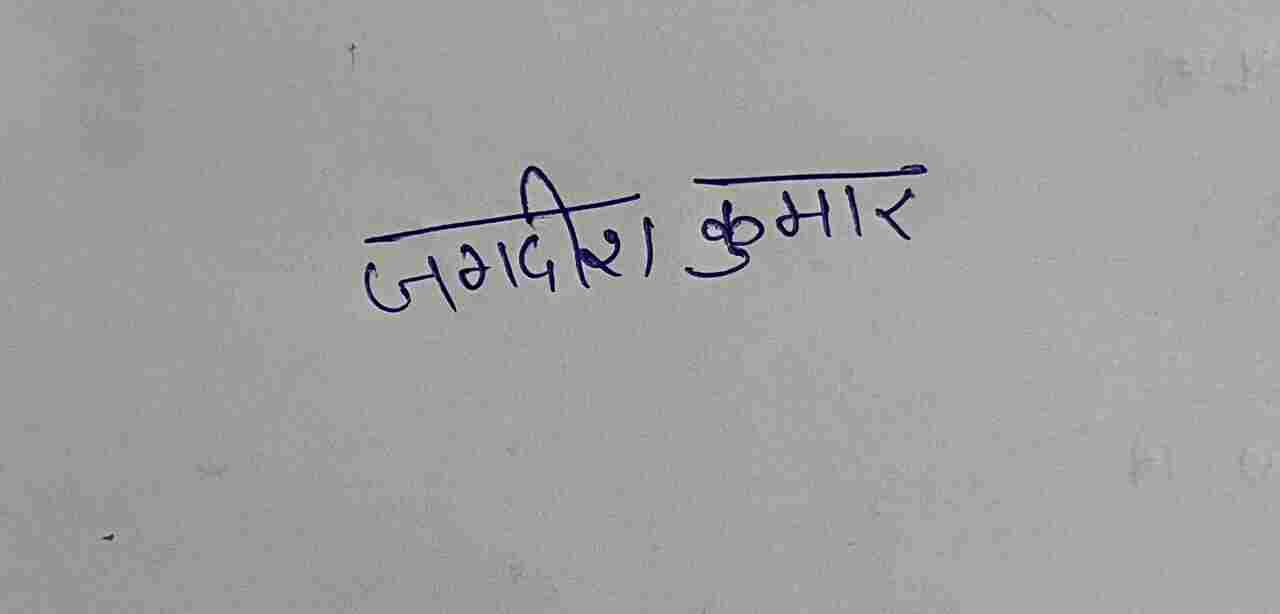 जगदीश कुमार